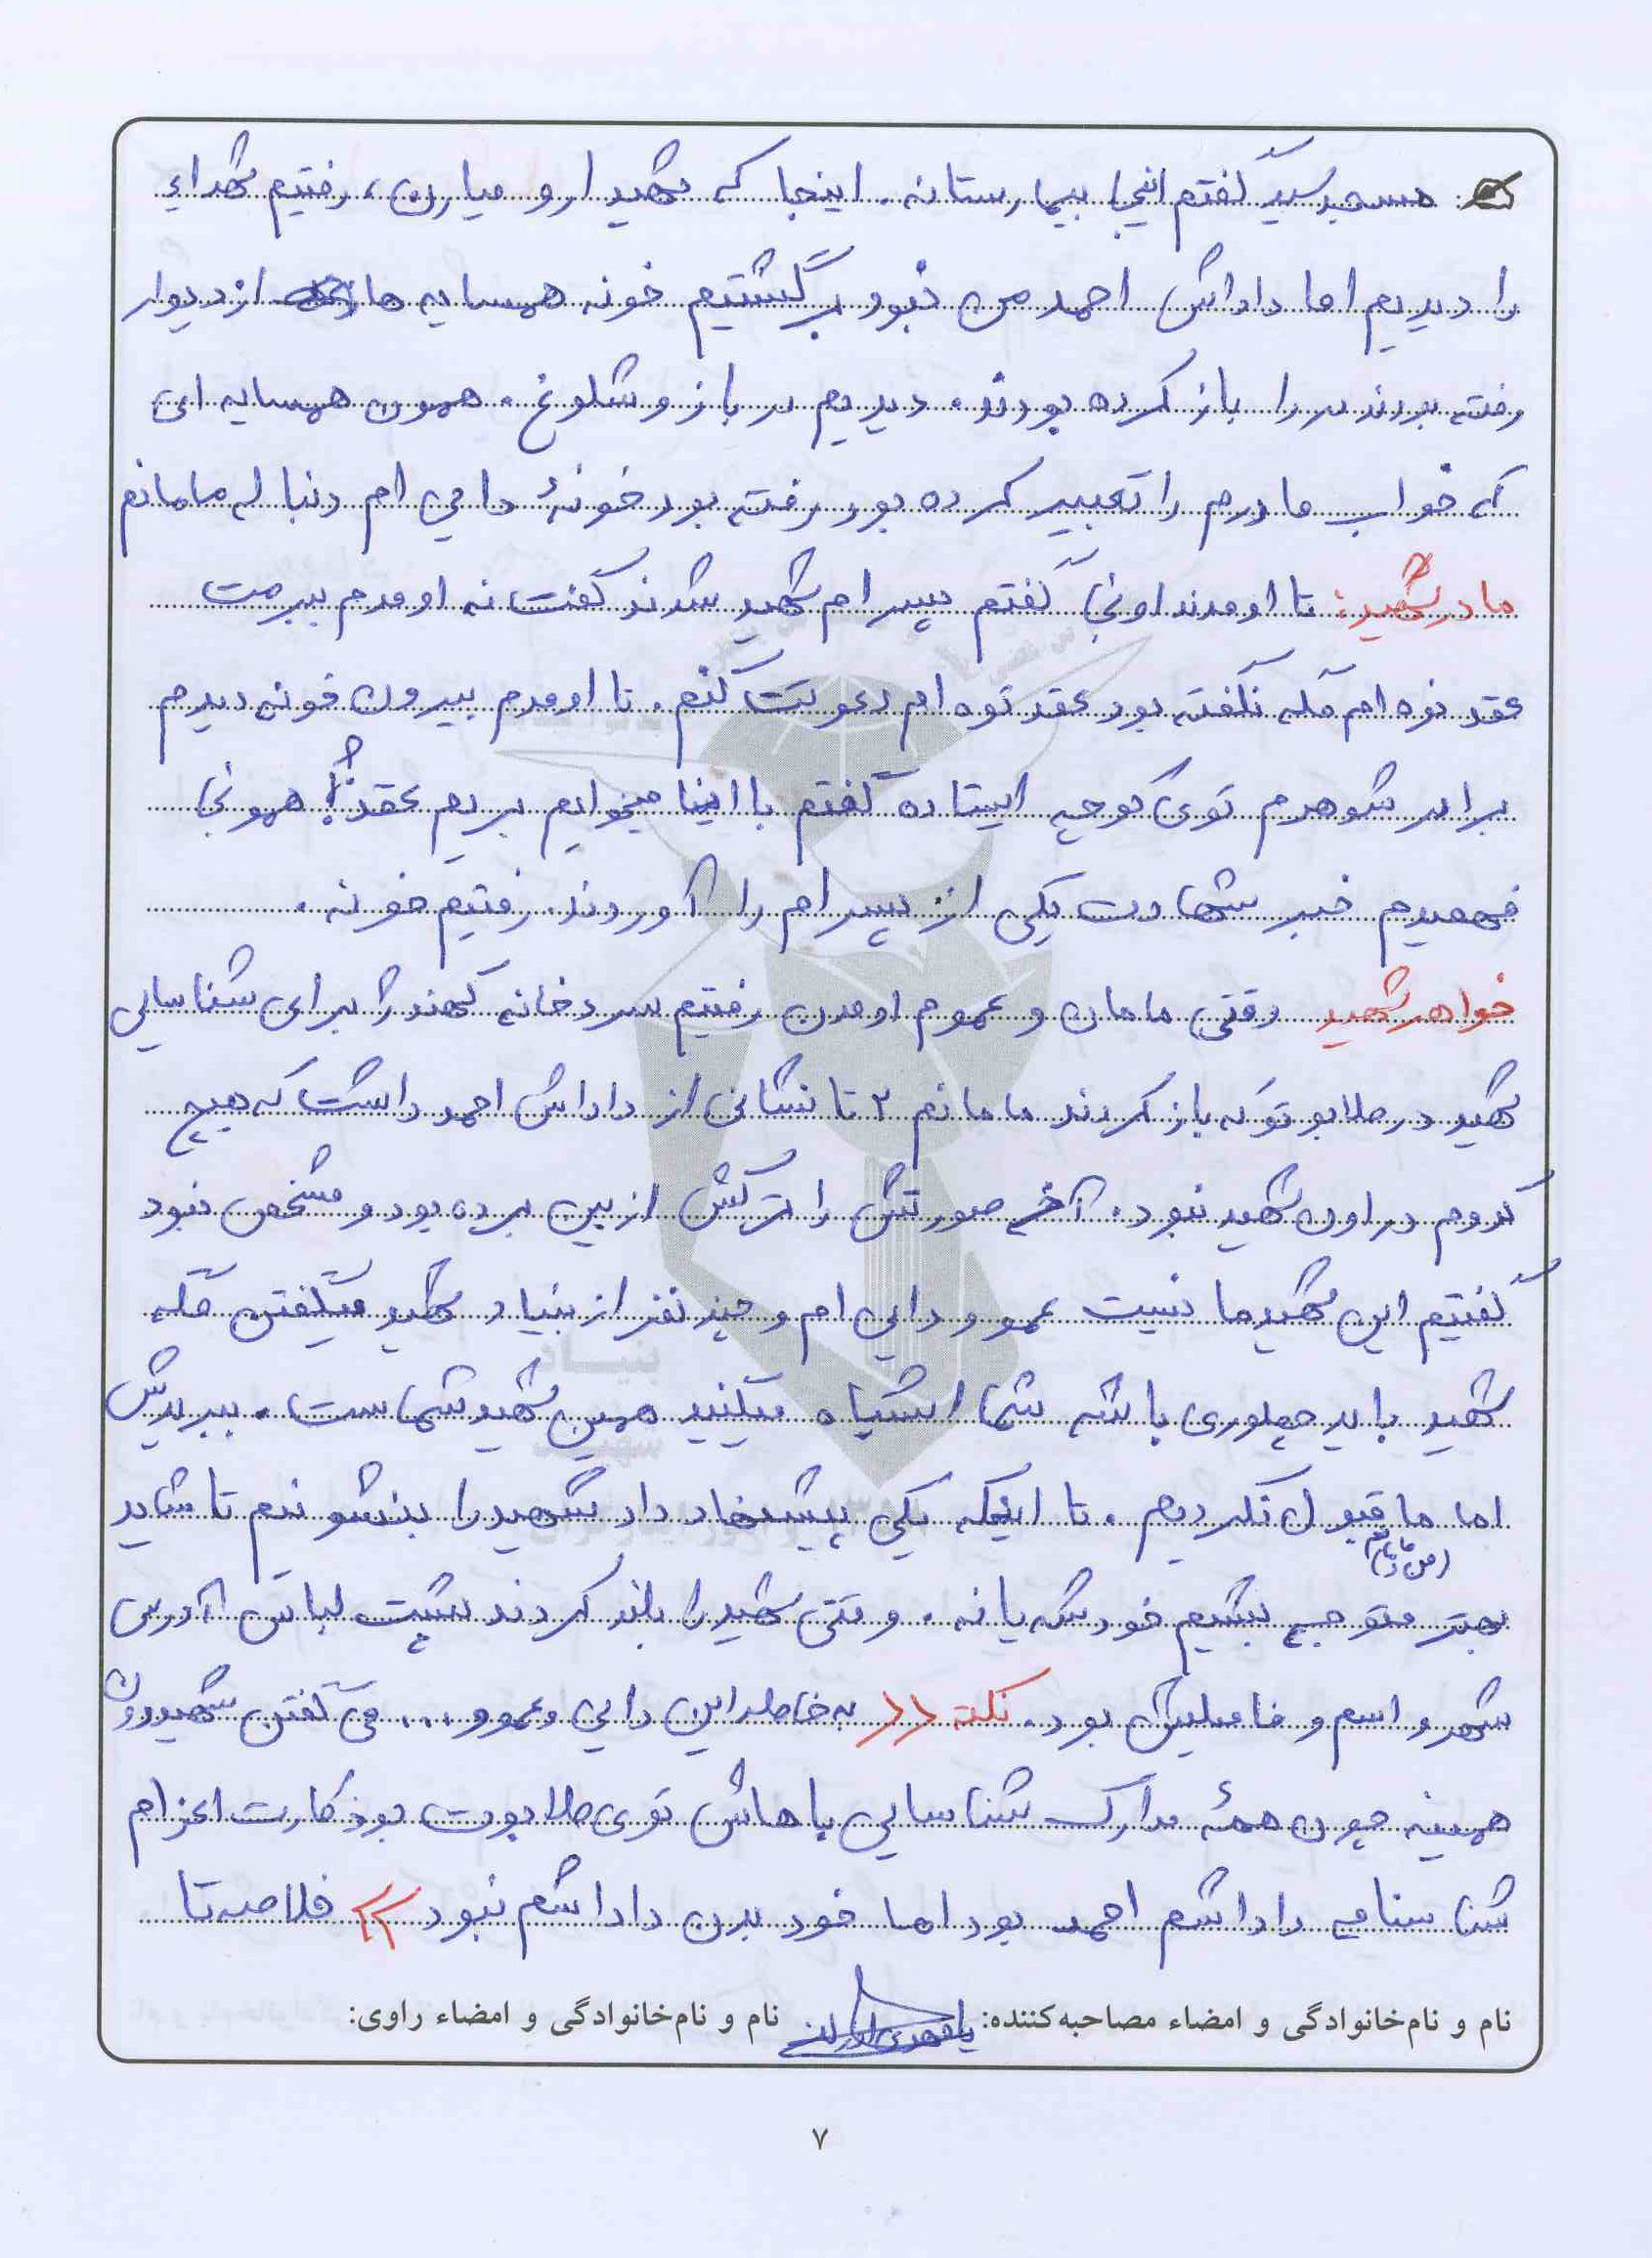 مسجد سید گفتم اینجا بیمارستانه. اینجا که شهیدا رو میارن، رفتیم شهداء
را دیدیم اما داداش احمد من نبود برگشتیم خونه همسایه ها از دیوار
رفته بودند در را باز کرده بودند. دیدیم در باز و شلوغ. همون همسایه ای
که خواب مادرم را تعبیر کرده بود رفته بود خونهٔ دایی ام دنبال مامانم
مادر شهید: تا اومدند اونجا گفتم پسرام شهید شدند گفت نه اومدم ببرمت
عقد نوه ام مگه نگفته بود عقد نوه ام دعوتت کنم. تا اومدم بیرون خونه دیدم
برادر شوهرم توی کوچه ایستاده گفتم با اینا میخوایم بریم عقد؟! همونجا
فهمیدم خبر شهادت یکی از پسرام را آوردند. رفتیم خونه.
خواهر شهید وقتی مامان و عموم اومدن رفتیم سردخانه کهندژ برای شناسایی
شهید در صلابوتو که باز کردند مامانم ۲ تا نشانی از داداش احمد داشت که هیچ
کدوم در اون شهید نبود. آخه صورتش را ترکش از بین برده بود و مشخص نبود
گفتیم این شهید ما نیست عمو و دایی ام و چند نفر از بنیاد شهید میگفتن مگه
شهید باید چطوری باشه شما اشتباه میکنید همین شهید شماست. ببریدش
اما ما قبول نکردیم. تا اینکه یکی پیشنهاد داد شهید را بنشوندم تا شاید
بهتر متوجه بشیم خودشه یا نه. وقتی شهید را بلند کردند پشت لباس آدرس
شهر و اسم و فامیلیش بود. نکته « به خاطر این دایی و عمو و ... می گفتن شهیدتون
همینه چون همهٔ مدارک شناسایی باهاش توی صلابوت بود کارت اعزام
شناسنامه داداشم احمد بود اما خود بدن داداشم نبود » خلاصه تا
نام و نام‌خانوادگی و امضاء مصاحبه‌کننده: نام و نام‌خانوادگی و امضاء راوی:
۷